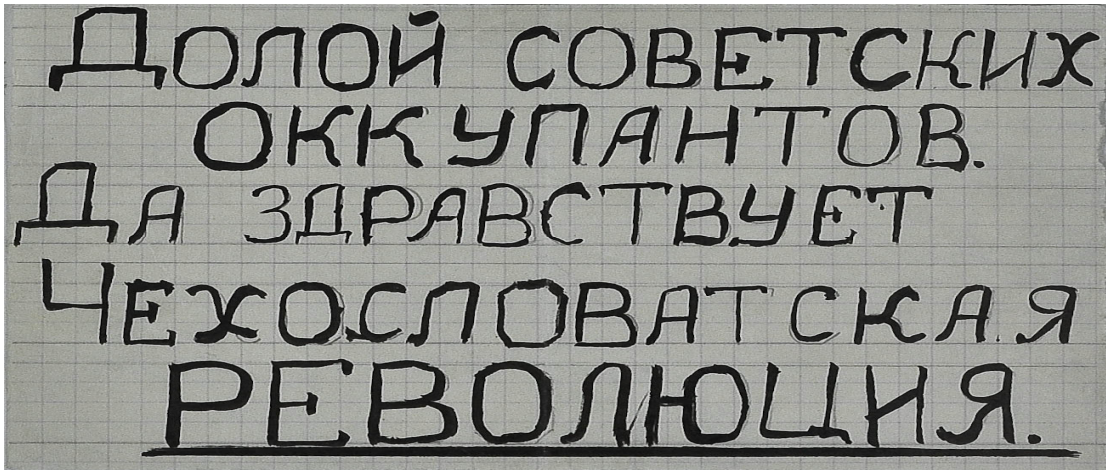 Долой советских
оккупантов.
Да здравствует
Чехословатская
революция.